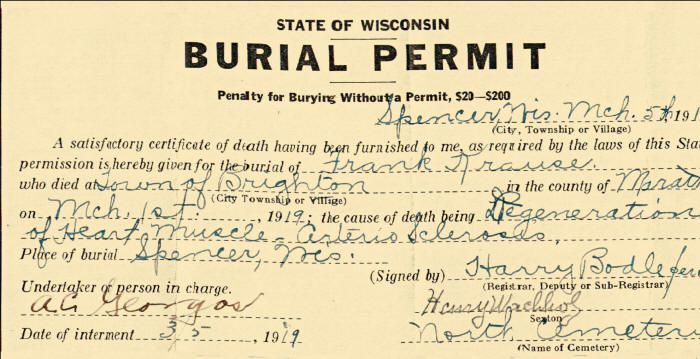 STATE OF WISCONSIN
BURIAL PERMIT
Penalty for Burying Without a Permit, $20—$200
Spencer, Wis. Mch. 5th 191
(City, Township or Village)
A satisfactory certificate of death having been furnished to me, as required by the laws of this Stat
permission is hereby given for the burial of Frank Krause.
who died at Town of Brighton in the county of Marat
(City Township or Village)
on Mch. 1st. , 1919; the cause of death being Degeneration
of Heart Muscle - Arterio Sclerosis,
Place of burial Spencer, Wis.
(Signed by) Harry Bodle
(Registrar, Deputy or Sub-Registrar)
Undertaker or person in charge.
Henry
A.C. Sexton
Date of interment 3/5 , 1919
North Cemeter
(Name of Cemetery)